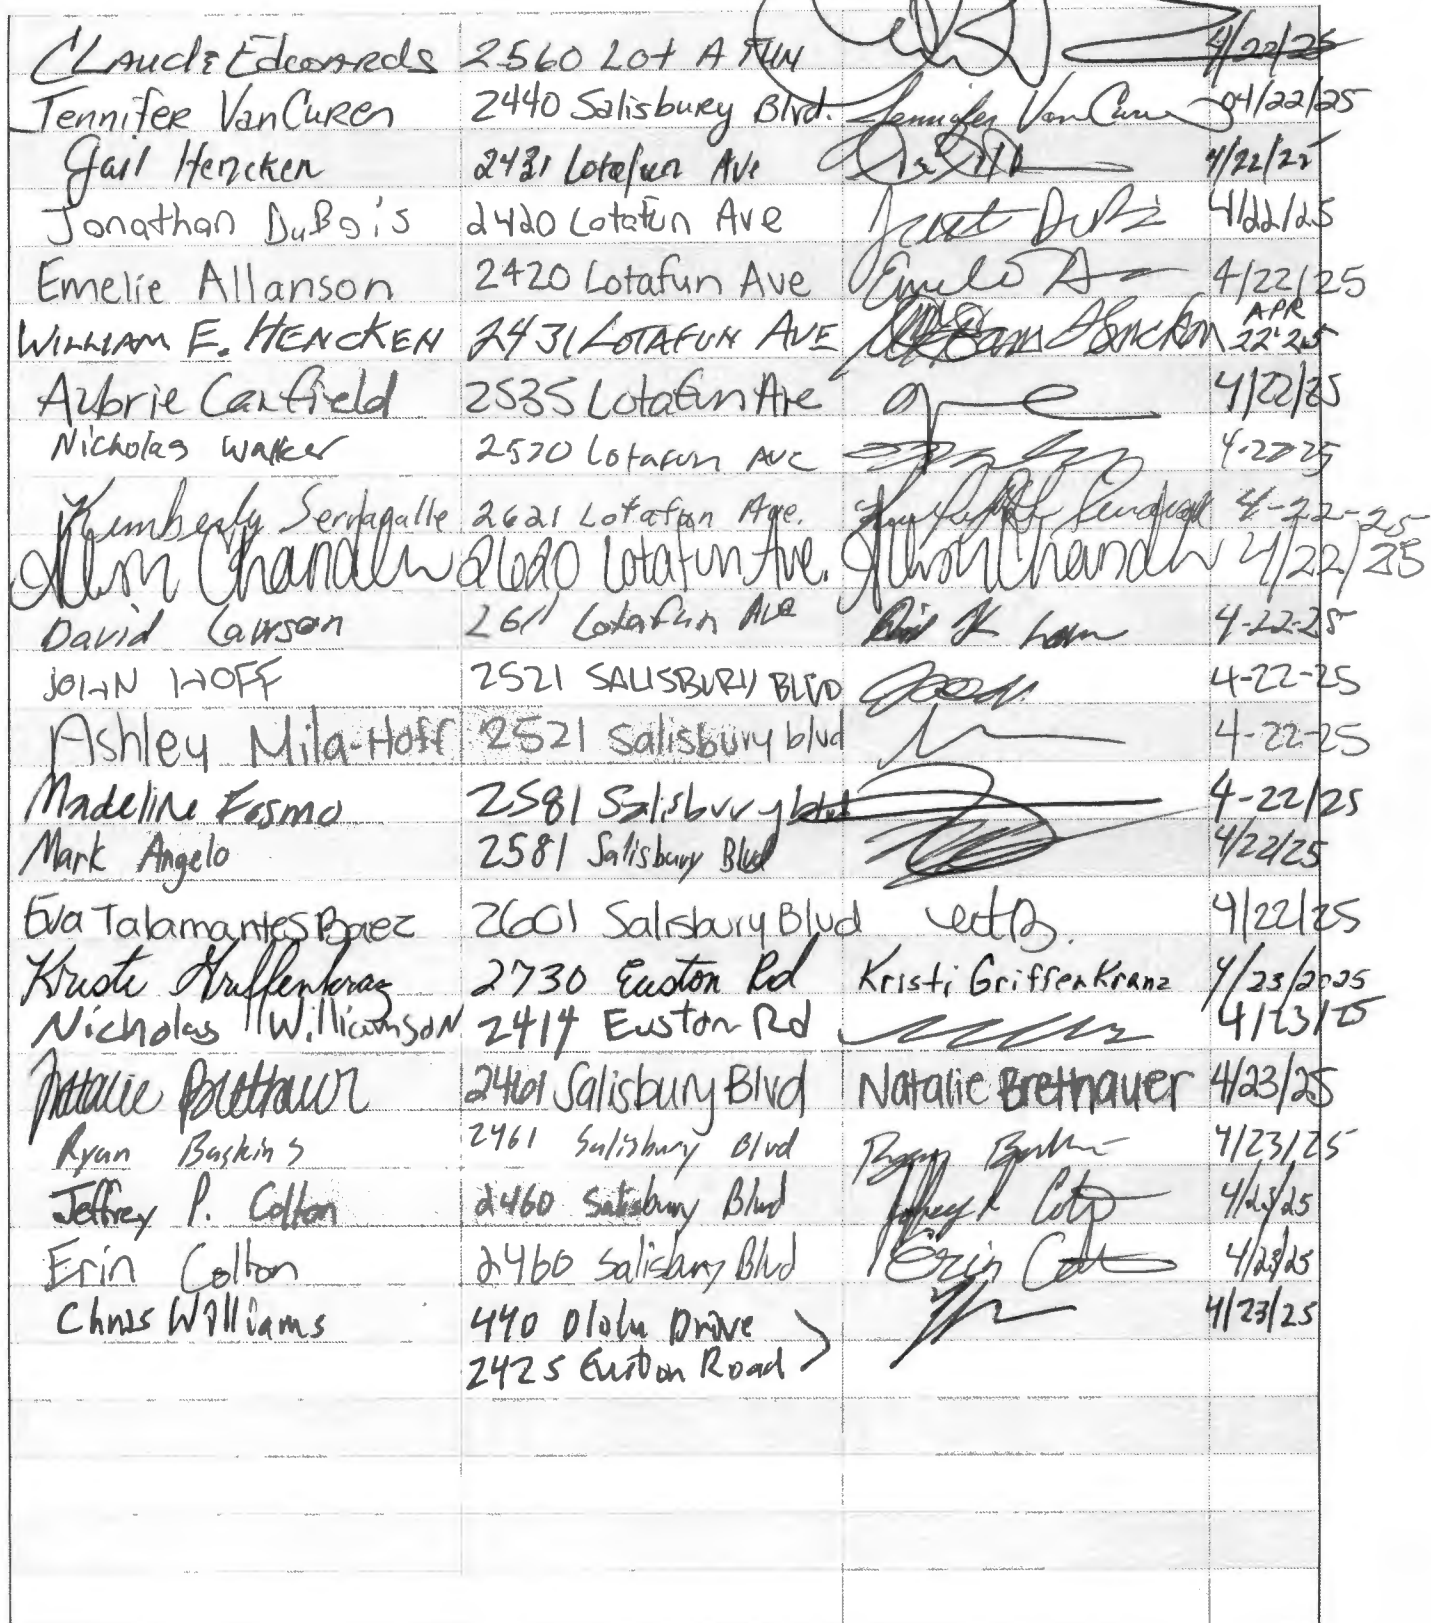 Claude Edwards 2560 Lot A Fun 4/22/25
Jennifer VanCuren 2440 Salisbury Blvd. Jennifer VanCuren 04/22/25
Gail Hencken 2431 Lotafun Ave 4/22/25
Jonathan DuBois 2420 Lotafun Ave 4/22/25
Emelie Allanson 2420 Lotafun Ave 4/22/25
WILLIAM E. HENCKEN 2431 LOTAFUN AVE Hencken APR 22'25
Aubrie Canfield 2535 Lotafun Ave 4/22/25
Nicholas Walker 2570 Lotafun Ave 4-22-25
Kimberly 2621 Lotafun Ave. 4-22-25
Alison Chandler 2620 Lotafun Ave. Alison Chandler 4/22/25
David Lawson 2611 Lotafun Ave 4-22-25
JOHN HOFF 2521 SALISBURY BLVD 4-22-25
Ashley Mila-Hoff 2521 Salisbury blvd 4-22-25
Madeline Fosmo 2581 Salisbury blvd 4-22/25
Mark Angelo 2581 Salisbury Blvd 4/22/25
Eva Talamantes Baez 2601 Salisbury Blvd 4/22/25
Kristi Griffenkranz 2730 Euston Rd Kristi GriffenKranz 4/23/2025
Nicholas Williamson 2414 Euston Rd 4/23/25
Natalie Brethauer 2461 Salisbury Blvd Natalie Brethauer 4/23/25
Ryan Baskins 2461 Salisbury Blvd Ryan 4/23/25
Jeffrey P. Colton 2460 Salisbury Blvd 4/23/25
Erin Colton 2460 Salisbury Blvd Erin 4/23/25
Chris Williams 440 Drive 4/23/25
2425 Euston Road